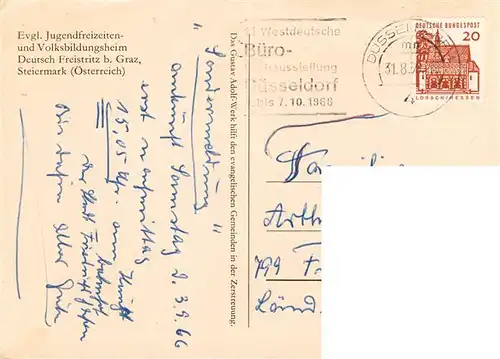 Evgl. Jugendfreizeiten-
und Volksbildungsheim
Deutsch Freistritz b. Graz,
Steiermark (Österreich)
"Sondermeldung"
Ankunft Samstag d. 3.9.66
erst nachmittag
15,05 Uhr am
bahnhof
der Stadt Friedrichshafen
Das Gustav Adolf-Werk hilft den evangelischen Gemeinden in der Zerstreuung.
Westdeutsche
Büro-
ausstellung
Düsseldorf
bis 7.10.1966
DÜSSEL
mn
31.8.
DEUTSCHE BUNDESPOST
20
LORSCH/HESSEN
Familie
Arth
799 F
Länd